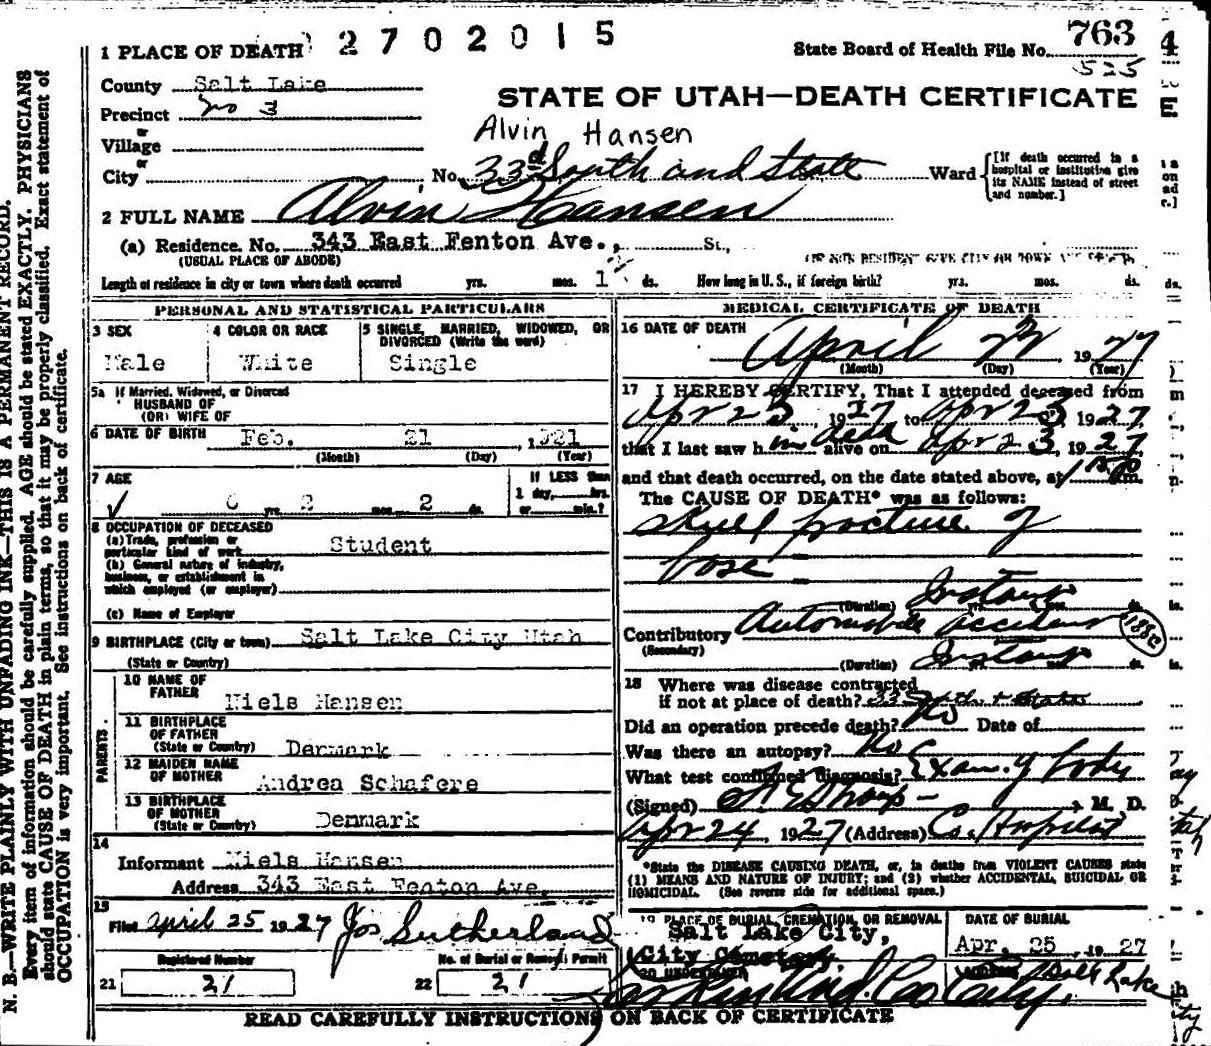 2702015
1 PLACE OF DEATH
State Board of Health File No. 763 4
525
County Salt Lake
STATE OF UTAH—DEATH CERTIFICATE
Precinct No 3
Alvin Hansen
or
Village
or
City No. 33d South and State Ward [If death occurred in a hospital or institution give its NAME instead of street and number.]
2 FULL NAME Alvin Hansen
(a) Residence. No. 343 East Fenton Ave., St.,
(USUAL PLACE OF ABODE)
Length of residence in city or town where death occurred yrs. mos. 1 ds. How long in U. S., if foreign birth? yrs. mos. ds.
PERSONAL AND STATISTICAL PARTICULARS
3 SEX
Male
4 COLOR OR RACE
White
5 SINGLE, MARRIED, WIDOWED, OR DIVORCED (Write the word)
Single
5a If Married, Widowed, or Divorced
HUSBAND OF
(OR) WIFE OF
6 DATE OF BIRTH Feb. 21, 1921
(Month) (Day) (Year)
7 AGE
6 yrs. 2 mos. 2 ds.
IF LESS than
1 day, hrs.
or min.?
8 OCCUPATION OF DECEASED
(a) Trade, profession or particular kind of work Student
(b) General nature of industry, business, or establishment in which employed (or employer)
(c) Name of Employer
9 BIRTHPLACE (City or town) Salt Lake City Utah
(State or Country)
PARENTS
10 NAME OF FATHER Niels Hansen
11 BIRTHPLACE OF FATHER (State or Country) Denmark
12 MAIDEN NAME OF MOTHER Andrea Schafere
13 BIRTHPLACE OF MOTHER (State or Country) Denmark
14
Informant Niels Hansen
Address 343 East Fenton Ave.
15
Filed April 25 1927 Jos Sutherland
Registered Number
21 21
No. of Burial or Removal Permit
22 21
MEDICAL CERTIFICATE OF DEATH
16 DATE OF DEATH
April 1927
(Month) (Day) (Year)
17 I HEREBY CERTIFY, That I attended deceased from
Apr 23, 1927 to Apr 23, 1927
that I last saw him dead alive on Apr 23, 1927
and that death occurred, on the date stated above, at m.
The CAUSE OF DEATH* was as follows:
Skull fracture of
base
(Duration) Instant yrs. mos. ds.
Contributory Automobile accident
(Secondary)
(Duration) Instant
18 Where was disease contracted
if not at place of death? 33 South + State
Did an operation precede death? No Date of
Was there an autopsy? No
What test confirmed diagnosis? Exam. of body
(Signed) M. D.
Apr 24, 1927 (Address) Co. Hospital
*State the DISEASE CAUSING DEATH, or, in deaths from VIOLENT CAUSES state
(1) MEANS AND NATURE OF INJURY; and (2) whether ACCIDENTAL, SUICIDAL OR
HOMICIDAL. (See reverse side for additional space.)
19 PLACE OF BURIAL, CREMATION, OR REMOVAL
Salt Lake City,
City Cemetery
DATE OF BURIAL
Apr. 25, 1927
20 UNDERTAKER
Salt Lake City.
READ CAREFULLY INSTRUCTIONS ON BACK OF CERTIFICATE
N. B.—WRITE PLAINLY WITH UNFADING INK—THIS IS A PERMANENT RECORD.
Every item of information should be carefully supplied. AGE should be stated EXACTLY. PHYSICIANS
should state CAUSE OF DEATH in plain terms, so that it may be properly classified. Exact statement of
OCCUPATION is very important. See instructions on back of certificate.